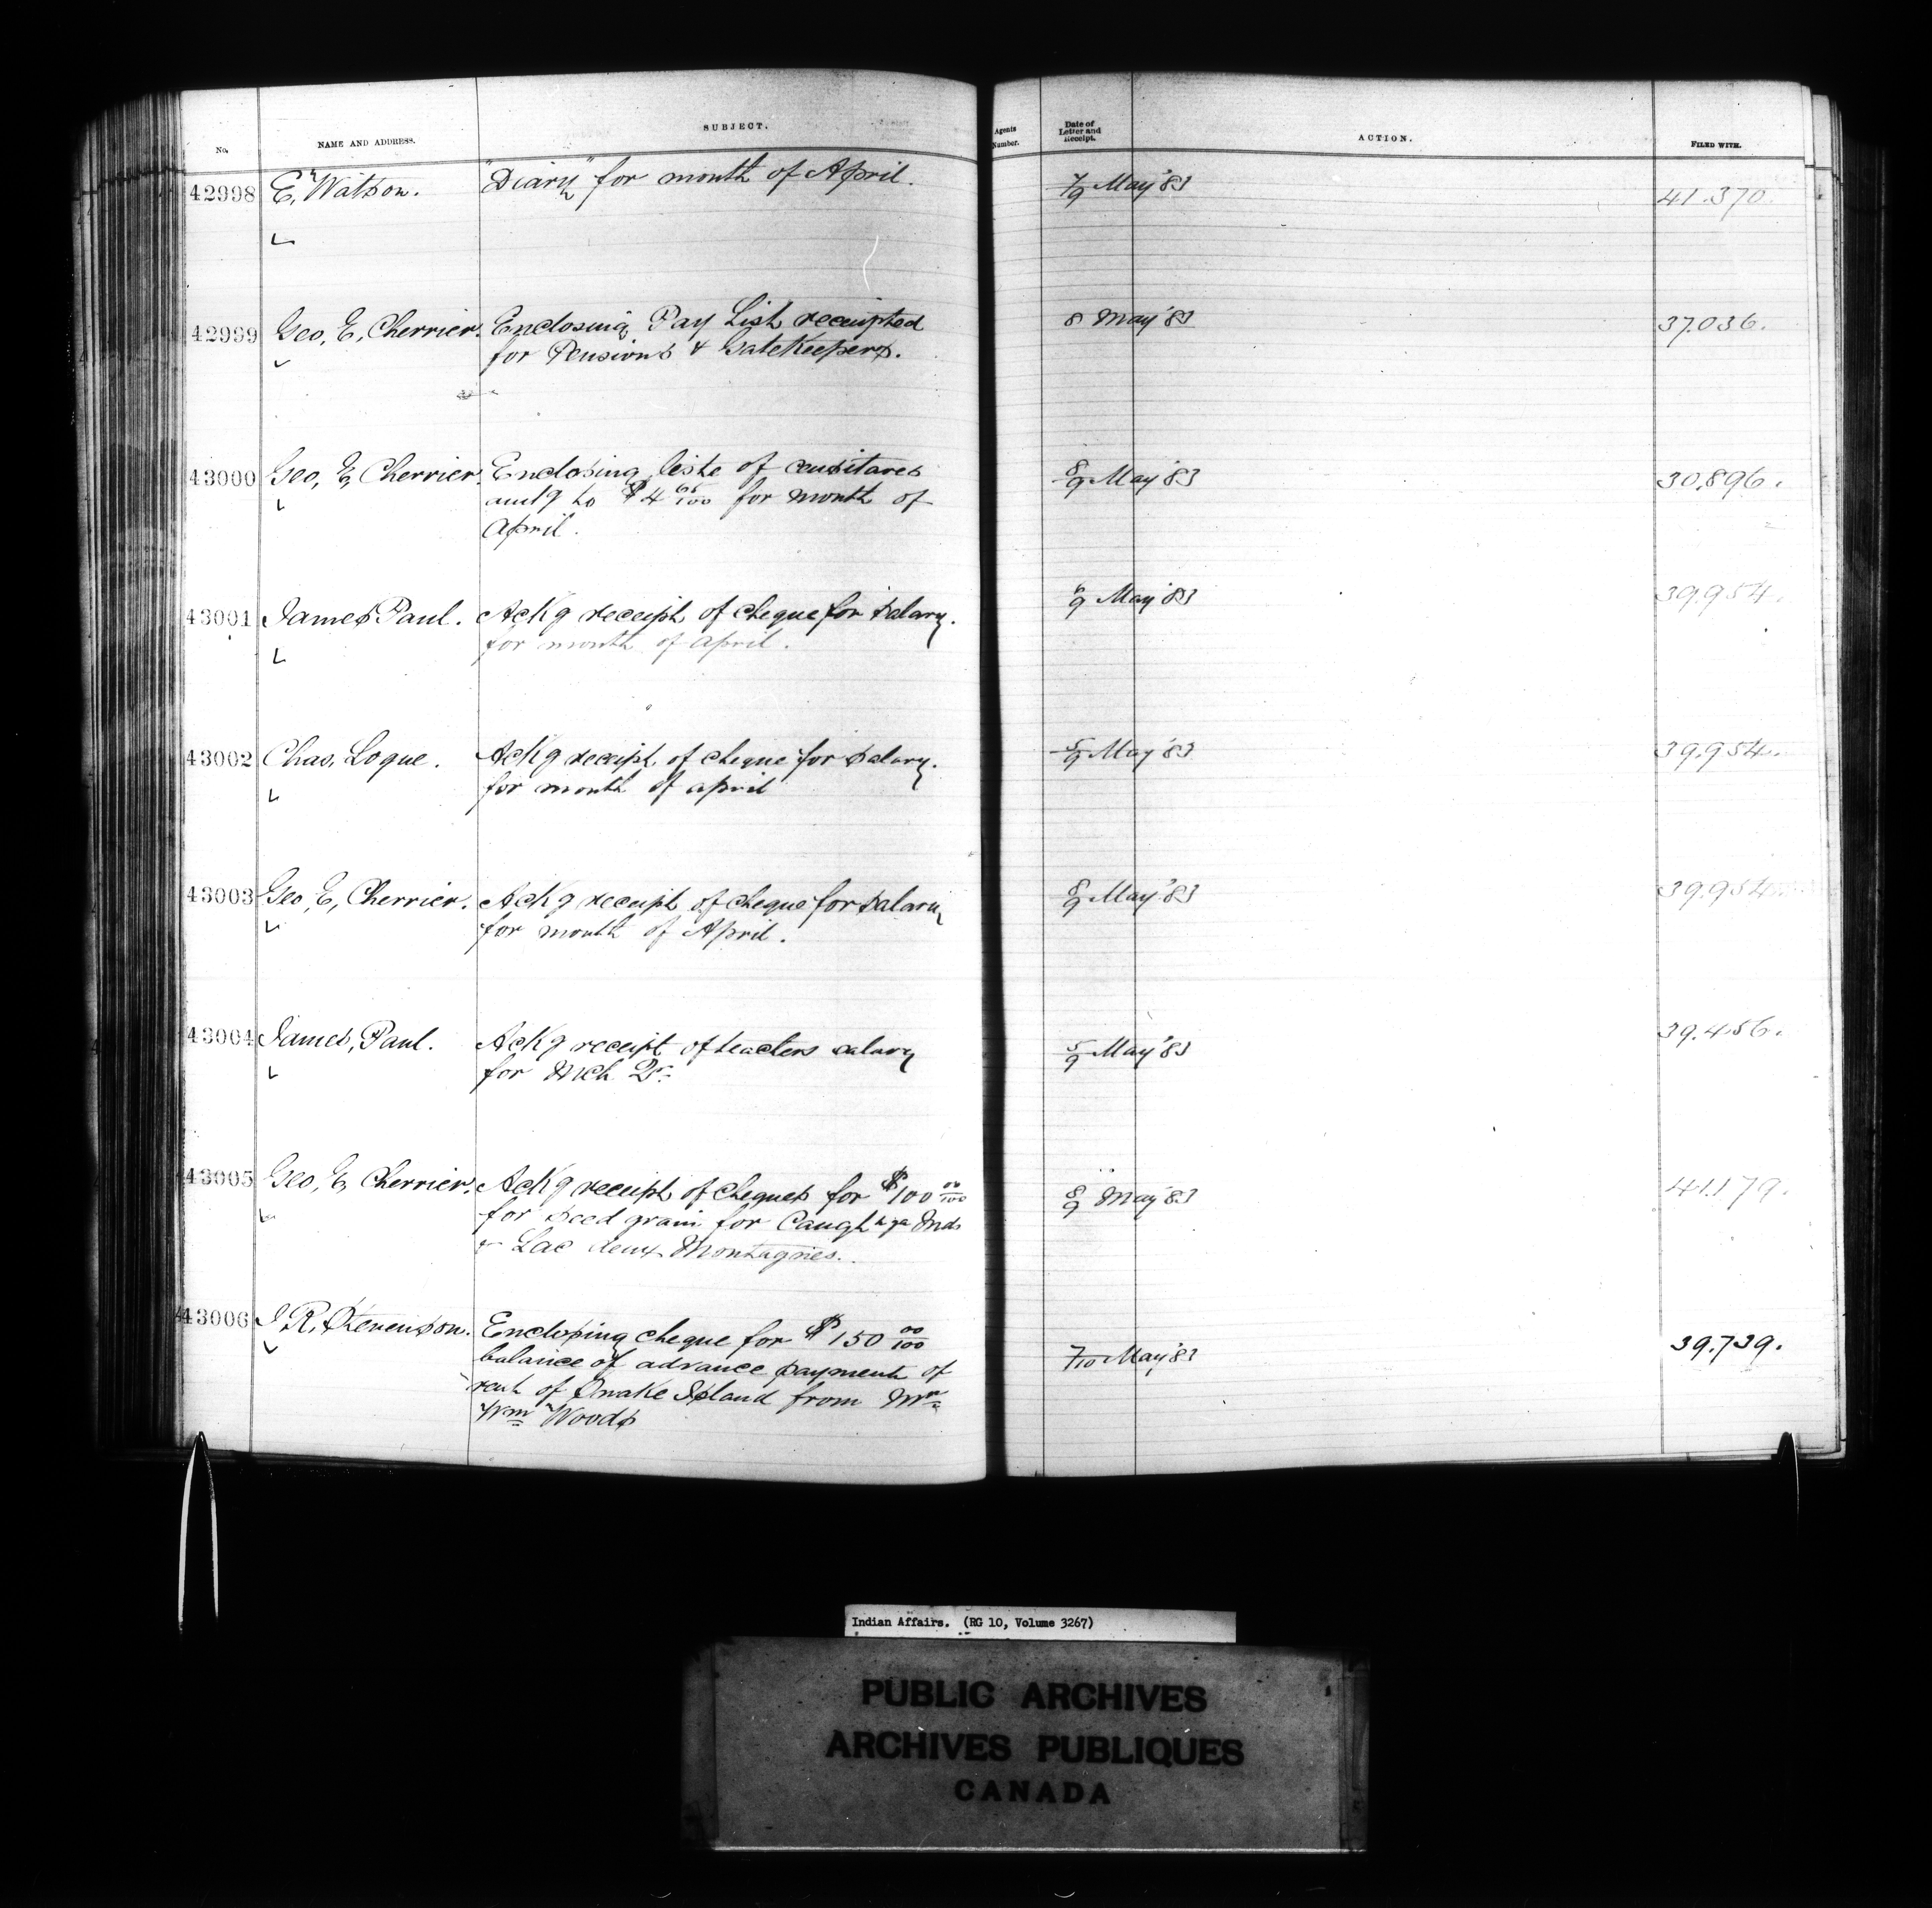 No. NAME AND ADDRESS. SUBJECT. Agents Number. Date of Letter and Receipt. ACTION. FILED WITH.
42998 E. Watson. "Diary" for month of April. 7/9 May '83 41.370.
42999 Geo, E, Cherrier. Enclosing Pay List receipted 8 May '83 37.036.
for Pensions & GateKeepers.
43000 Geo, E, Cherrier. Enclosing liste of censitares 8/9 May '83 30,896.
amtg to $4 65/100 for month of
April.
43001 James Paul. Ackg receipt of cheque for salary. 6/9 May '83 39.954.
for month of April.
43002 Chas, Logue. Ackg receipt of cheque for salary. 5/9 May '83 39.954.
for month of april
43003 Geo, E, Cherrier. Ackg receipt of cheque for salary 8/9 May '83 39.954.
for month of April.
43004 James, Paul. Ackg receipt of teachers salary 5/9 May '83 39.456.
for Mch Qr
43005 Geo, E, Cherrier. Ackg receipt of cheques for $100 00/100 8/9 May '83 41.179.
for seed grain for Caughnga Inds
& Lac deux Montagnes.
43006 J R, Stevenson. Enclosing cheque for $150 00/100 7/10 May '83 39.739.
balance of advance payment of
rent of Snake Island from Mr
Wm Woods
Indian Affairs. (RG 10, Volume 3267)
PUBLIC ARCHIVES
ARCHIVES PUBLIQUES
CANADA